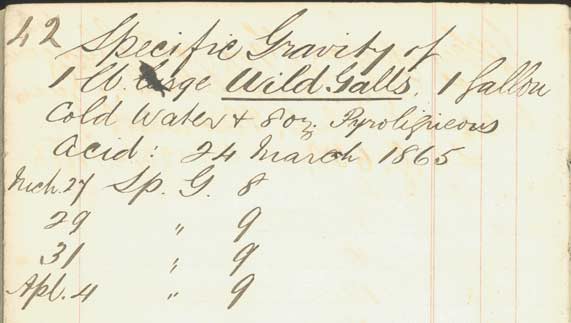 42
Specific Gravity of
1 lb. large Wild Galls, 1 gallon
Cold Water & 8 oz. Pyroligneous
Acid: 24 March 1865
Mch. 27 Sp. G. 8
29 " 9
31 " 9
Apl. 4 " 9